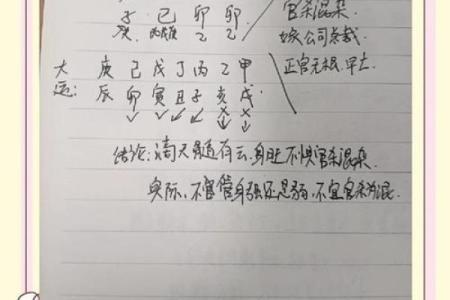 子 巳 卯 卯
癸 丙戊 乙 乙
官杀混杂
嫁公司总裁
正官无根.早亡.
大运: 庚 己 戊 丁 丙 乙 甲
辰 卯 寅 丑 子 亥 戌
结论:滴天髓有云.身旺不惧官杀混杂.
实际.不管身强还是弱.不宜官杀为混.